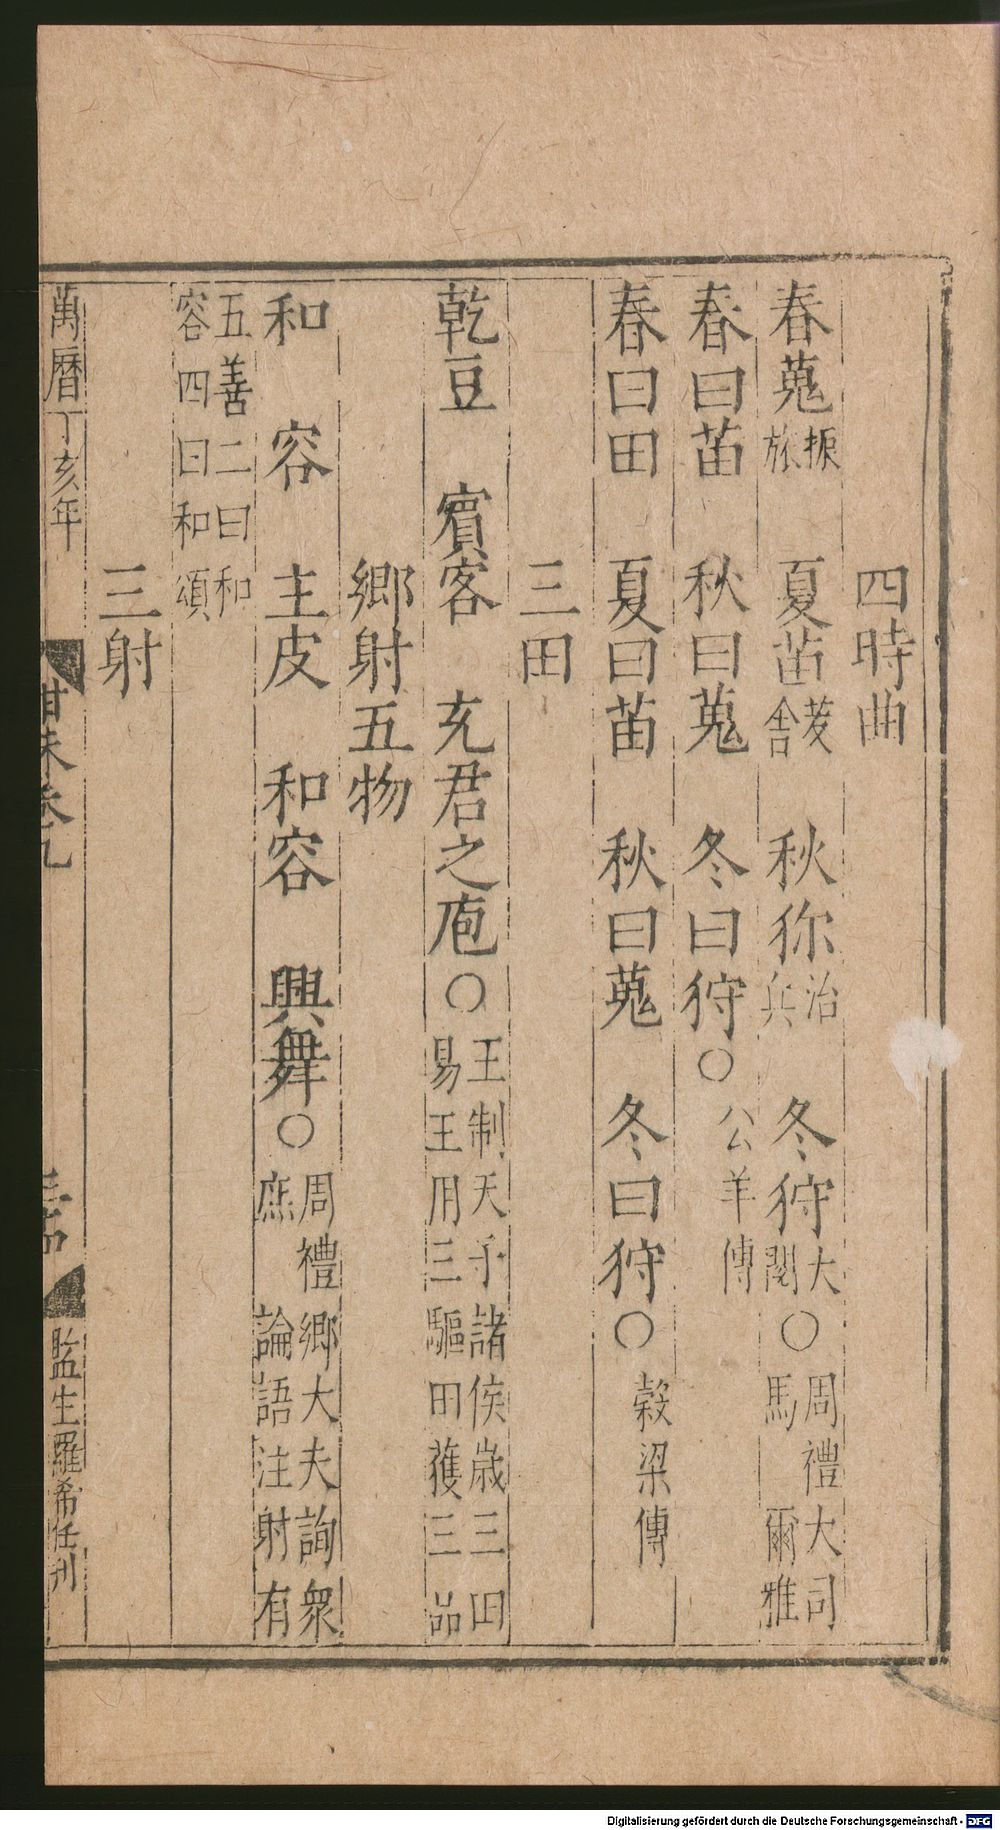 四時曲
春蒐振旅　夏苗茇舍　秋狝治兵　冬狩大閱○周禮大司馬　爾雅
春曰苗　秋曰蒐　冬曰狩○公羊傳
春曰田　夏曰苗　秋曰蒐　冬曰狩○穀梁傳
三田
乾豆　賓客　充君之庖○王制天子諸侯歲三田易王用三驅田獲三品
鄉射五物
和　容　主皮　和容　興舞○周禮鄉大夫詢衆庶　論語注射有
五善二曰和容四曰和頌
三射
萬曆丁亥年　卷九　監生羅希任刊
Digitalisierung gefördert durch die Deutsche Forschungsgemeinschaft - DFG